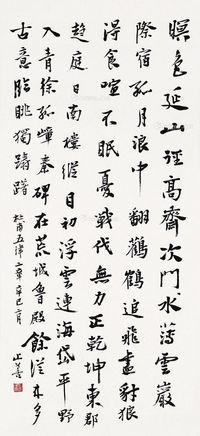 暝色延山徑高齋次門水薄雲巖
際宿孤月浪中翻鸛鶴追飛盡豺狼
得食喧不眠憂戰伐無力正乾坤東郡
趨庭日南樓縱目初浮雲連海岱平野
入青徐孤嶂秦碑在荒城魯殿餘從來多
古意臨眺獨躊躇
杜甫五律二章辛巳六月 止善